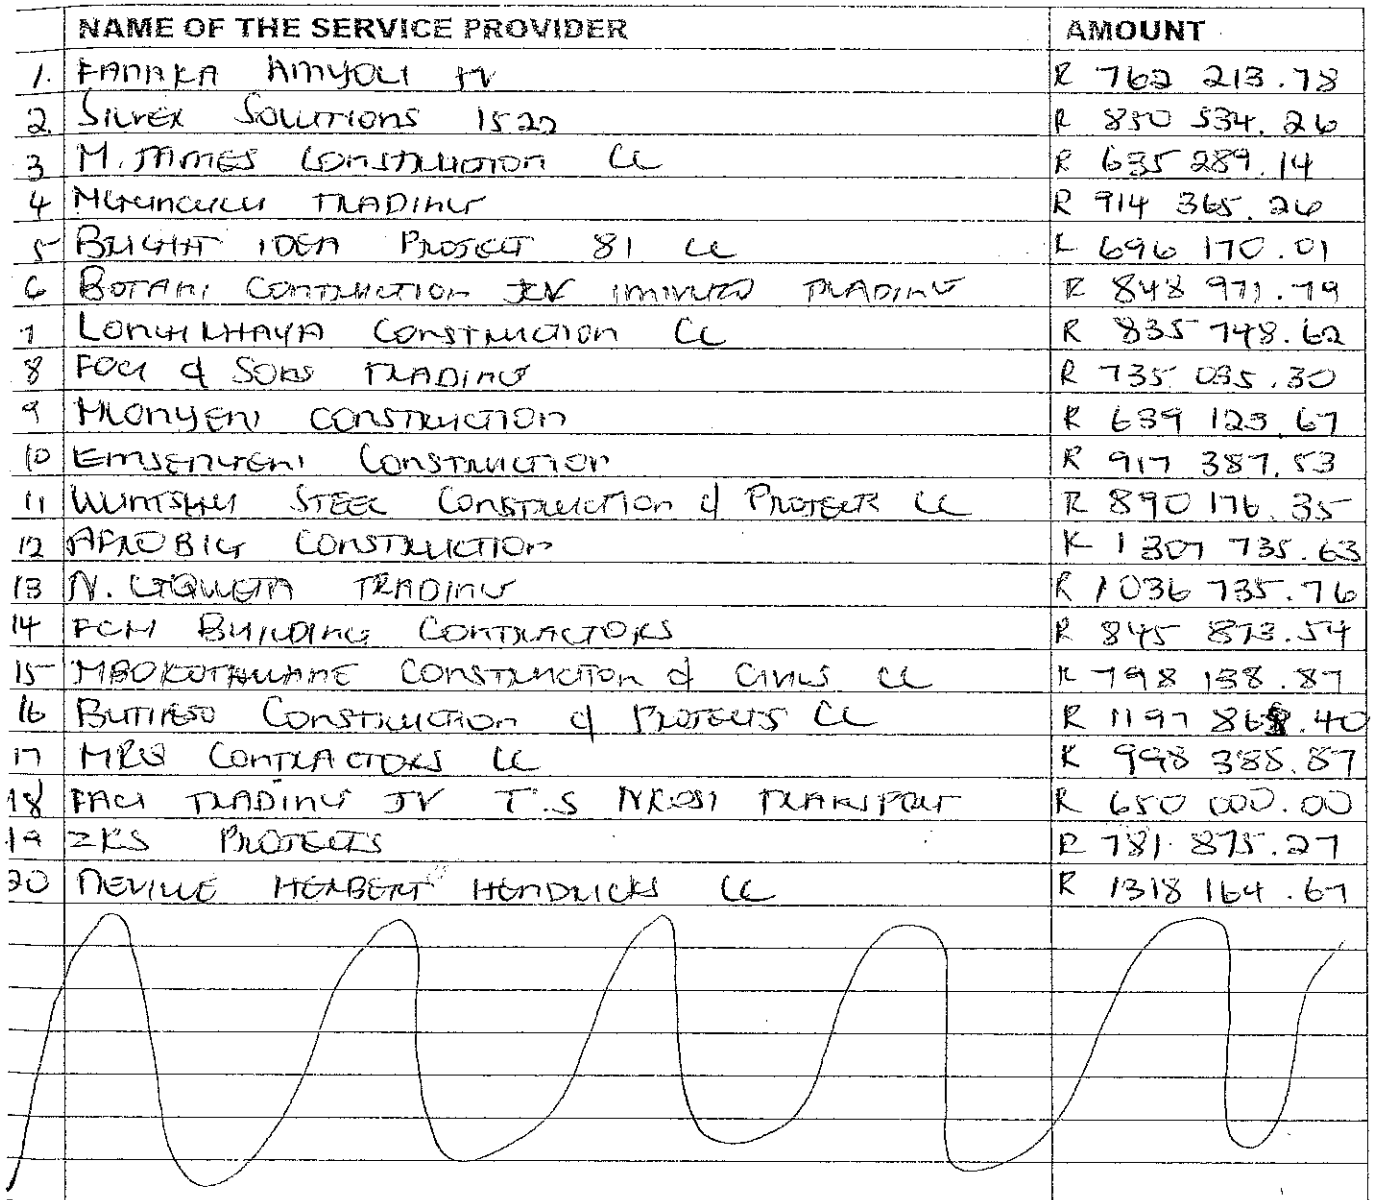 NAME OF THE SERVICE PROVIDER AMOUNT
1. FANAKA AMYOLI JV R 762 213.78
2. SILVEX SOLUTIONS 1522 R 850 534.26
3 M. JAMES CONSTRUCTION CC R 635 289.14
4 TRADING R 914 365.26
5 BRIGHT IDEA PROJECT 81 CC R 696 170.01
6 BOTANI CONTRUCTION JV TRADING R 848 971.79
7 LONGIKHAYA CONSTRUCTION CC R 835 748.62
8 & SONS TRADING R 735 035.30
9 MLONYENI CONSTRUCTION R 639 123.67
10 EMSENGENI CONSTRUCTION R 917 387.53
11 STEEL CONSTRUCTION & PROJECTS CC R 890 176.35
12 AFROBIG CONSTRUCTION R 1 307 735.63
13 N. GQWETA TRADING R 1 036 735.76
14 FCM BUILDING CONTRACTORS R 845 873.54
15 MBOKOTHWANE CONSTRUCTION & CIVILS CC R 798 138.87
16 CONSTRUCTION & PROJECTS CC R 1197 868.40
17 CONTRACTORS CC R 998 385.87
18 TRADING JV T.S NKOSI TRANSPORT R 650 000.00
19 ZKS PROJECTS R 781 875.27
20 NEVILLE HERBERT HENDRICKS CC R 1318 164.67